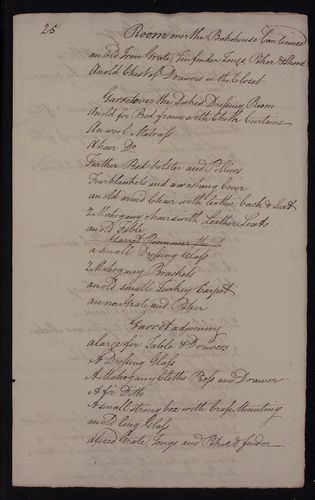 25
Room over the Bakehouse Continued
an old Iron Grate, fire fender Tongs, Poker & Shovel
An old Chest of Drawers in the Closet
Garret over the Duke's Dressing Room
An old fir Bed frame with Check Curtains
An wool Matrass
A hair Do
Feather Bed bolster and Pillows
Four blankets and a washing Cover
an old armd Chair with leather back & Seat
2 Mahogany chairs with Leather Seats
an old Table
a small Dressing Glass
2 Mahogany Brackets
an old small Turkey Carpet
an iron Grate and Poker
Garret adjoining
a large fir Table & Drawers
A Dressing Glass
A Mahogany Cloths Press and Drawer
A fir Ditto
A small strong box with brass Mounting
an old long Glass
a fixed Grate, Tongs and Poker & fender